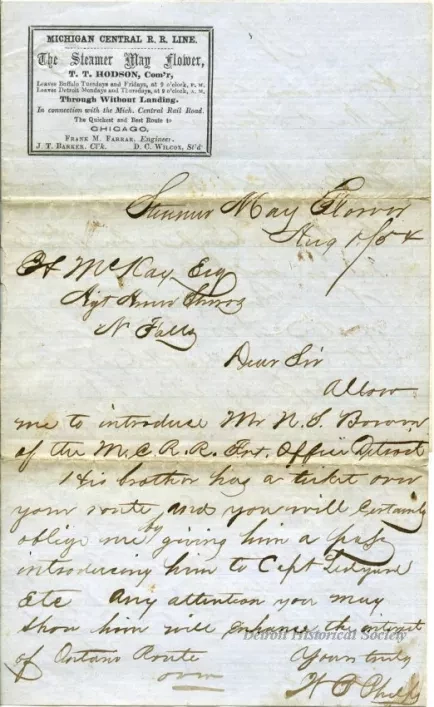 MICHIGAN CENTRAL R. R. LINE.
The Steamer May Flower,
T. T. HODSON, Com'r,
Leaves Buffalo Tuesdays and Fridays, at 9 o'clock, P. M.
Leaves Detroit Mondays and Thursdays, at 9 o'clock, A. M.
Through Without Landing.
In connection with the Mich. Central Rail Road.
The Quickest and Best Route to
CHICAGO.
FRANK M. FARRAR, Engineer.
J. T. BARKER, Cl'k. D. C. WILCOX, St'd
Steamer May Flower
Aug 1/54
McKay Esq
Agt
N Falls
Dear Sir
Allow
me to introduce Mr N. S.
of the M. C. R. R. Frt. Office Detroit
His brother has a ticket over
your route, and you will certainly
oblige me by giving him a pass
introducing him to Capt Ledyard
Etc Any attention you may
show him will enhance the interest
of Ontario Route
Yours truly
Detroit Historical Society